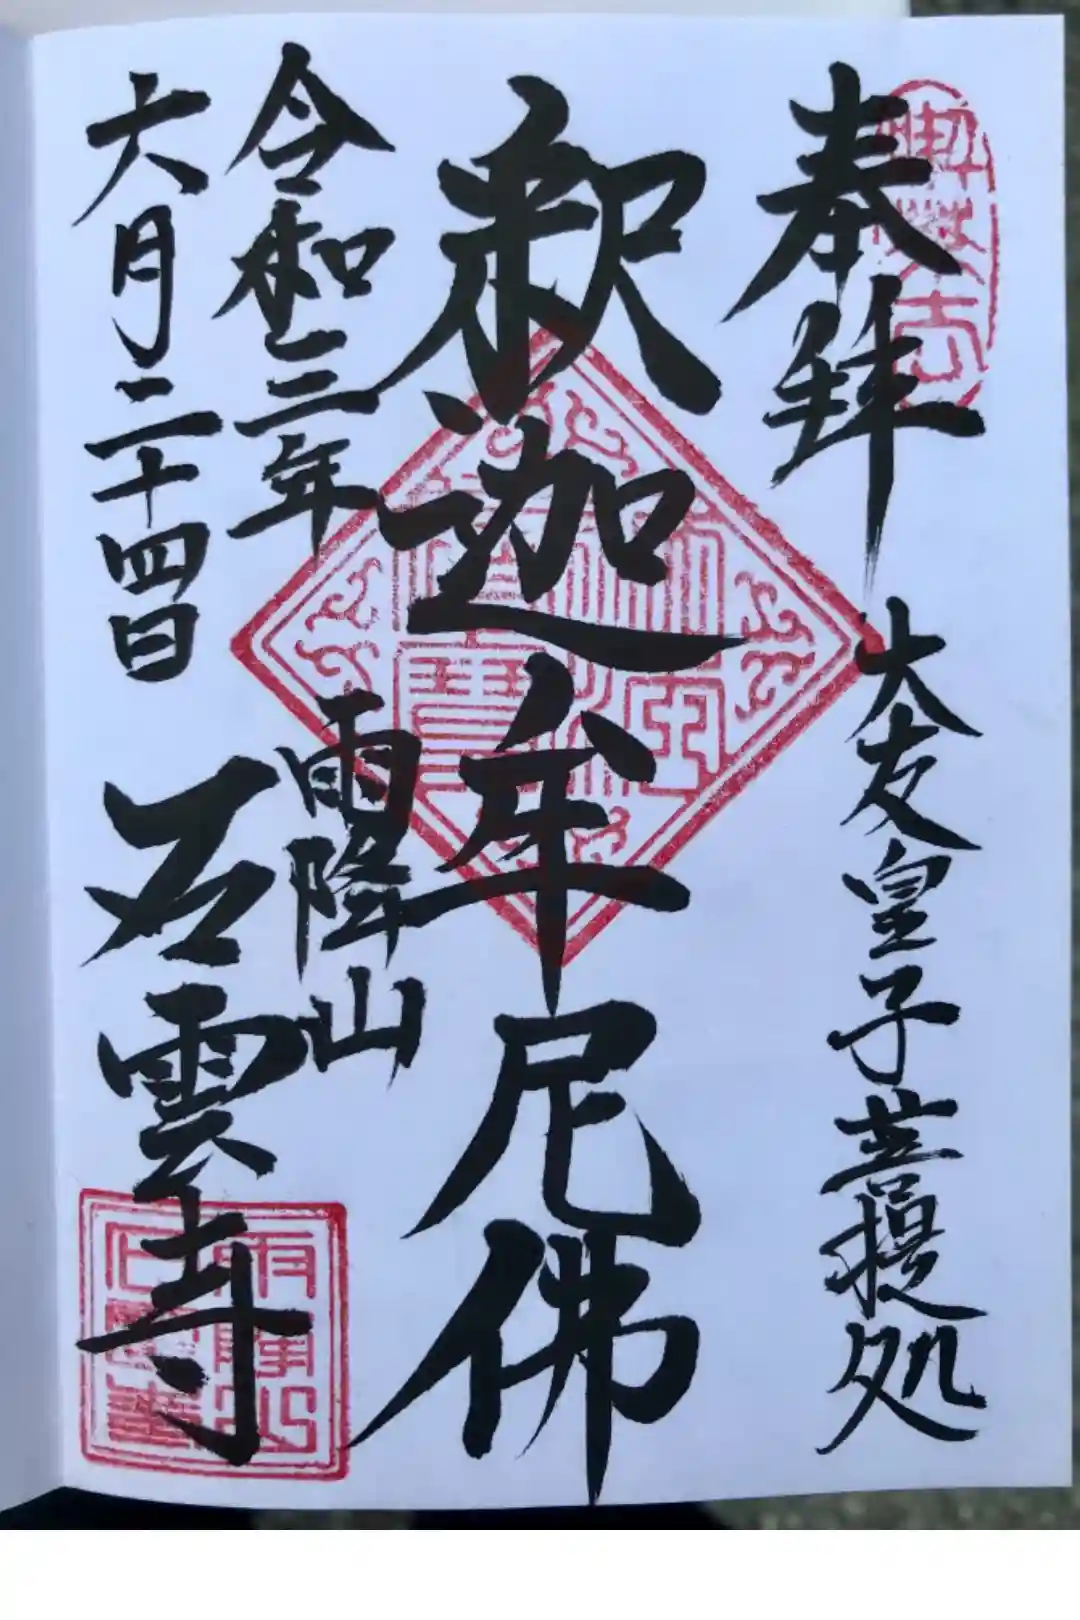 奉拜
大友皇子菩提処
釈迦牟尼佛
雨降山
石雲寺
令和三年
六月二十四日